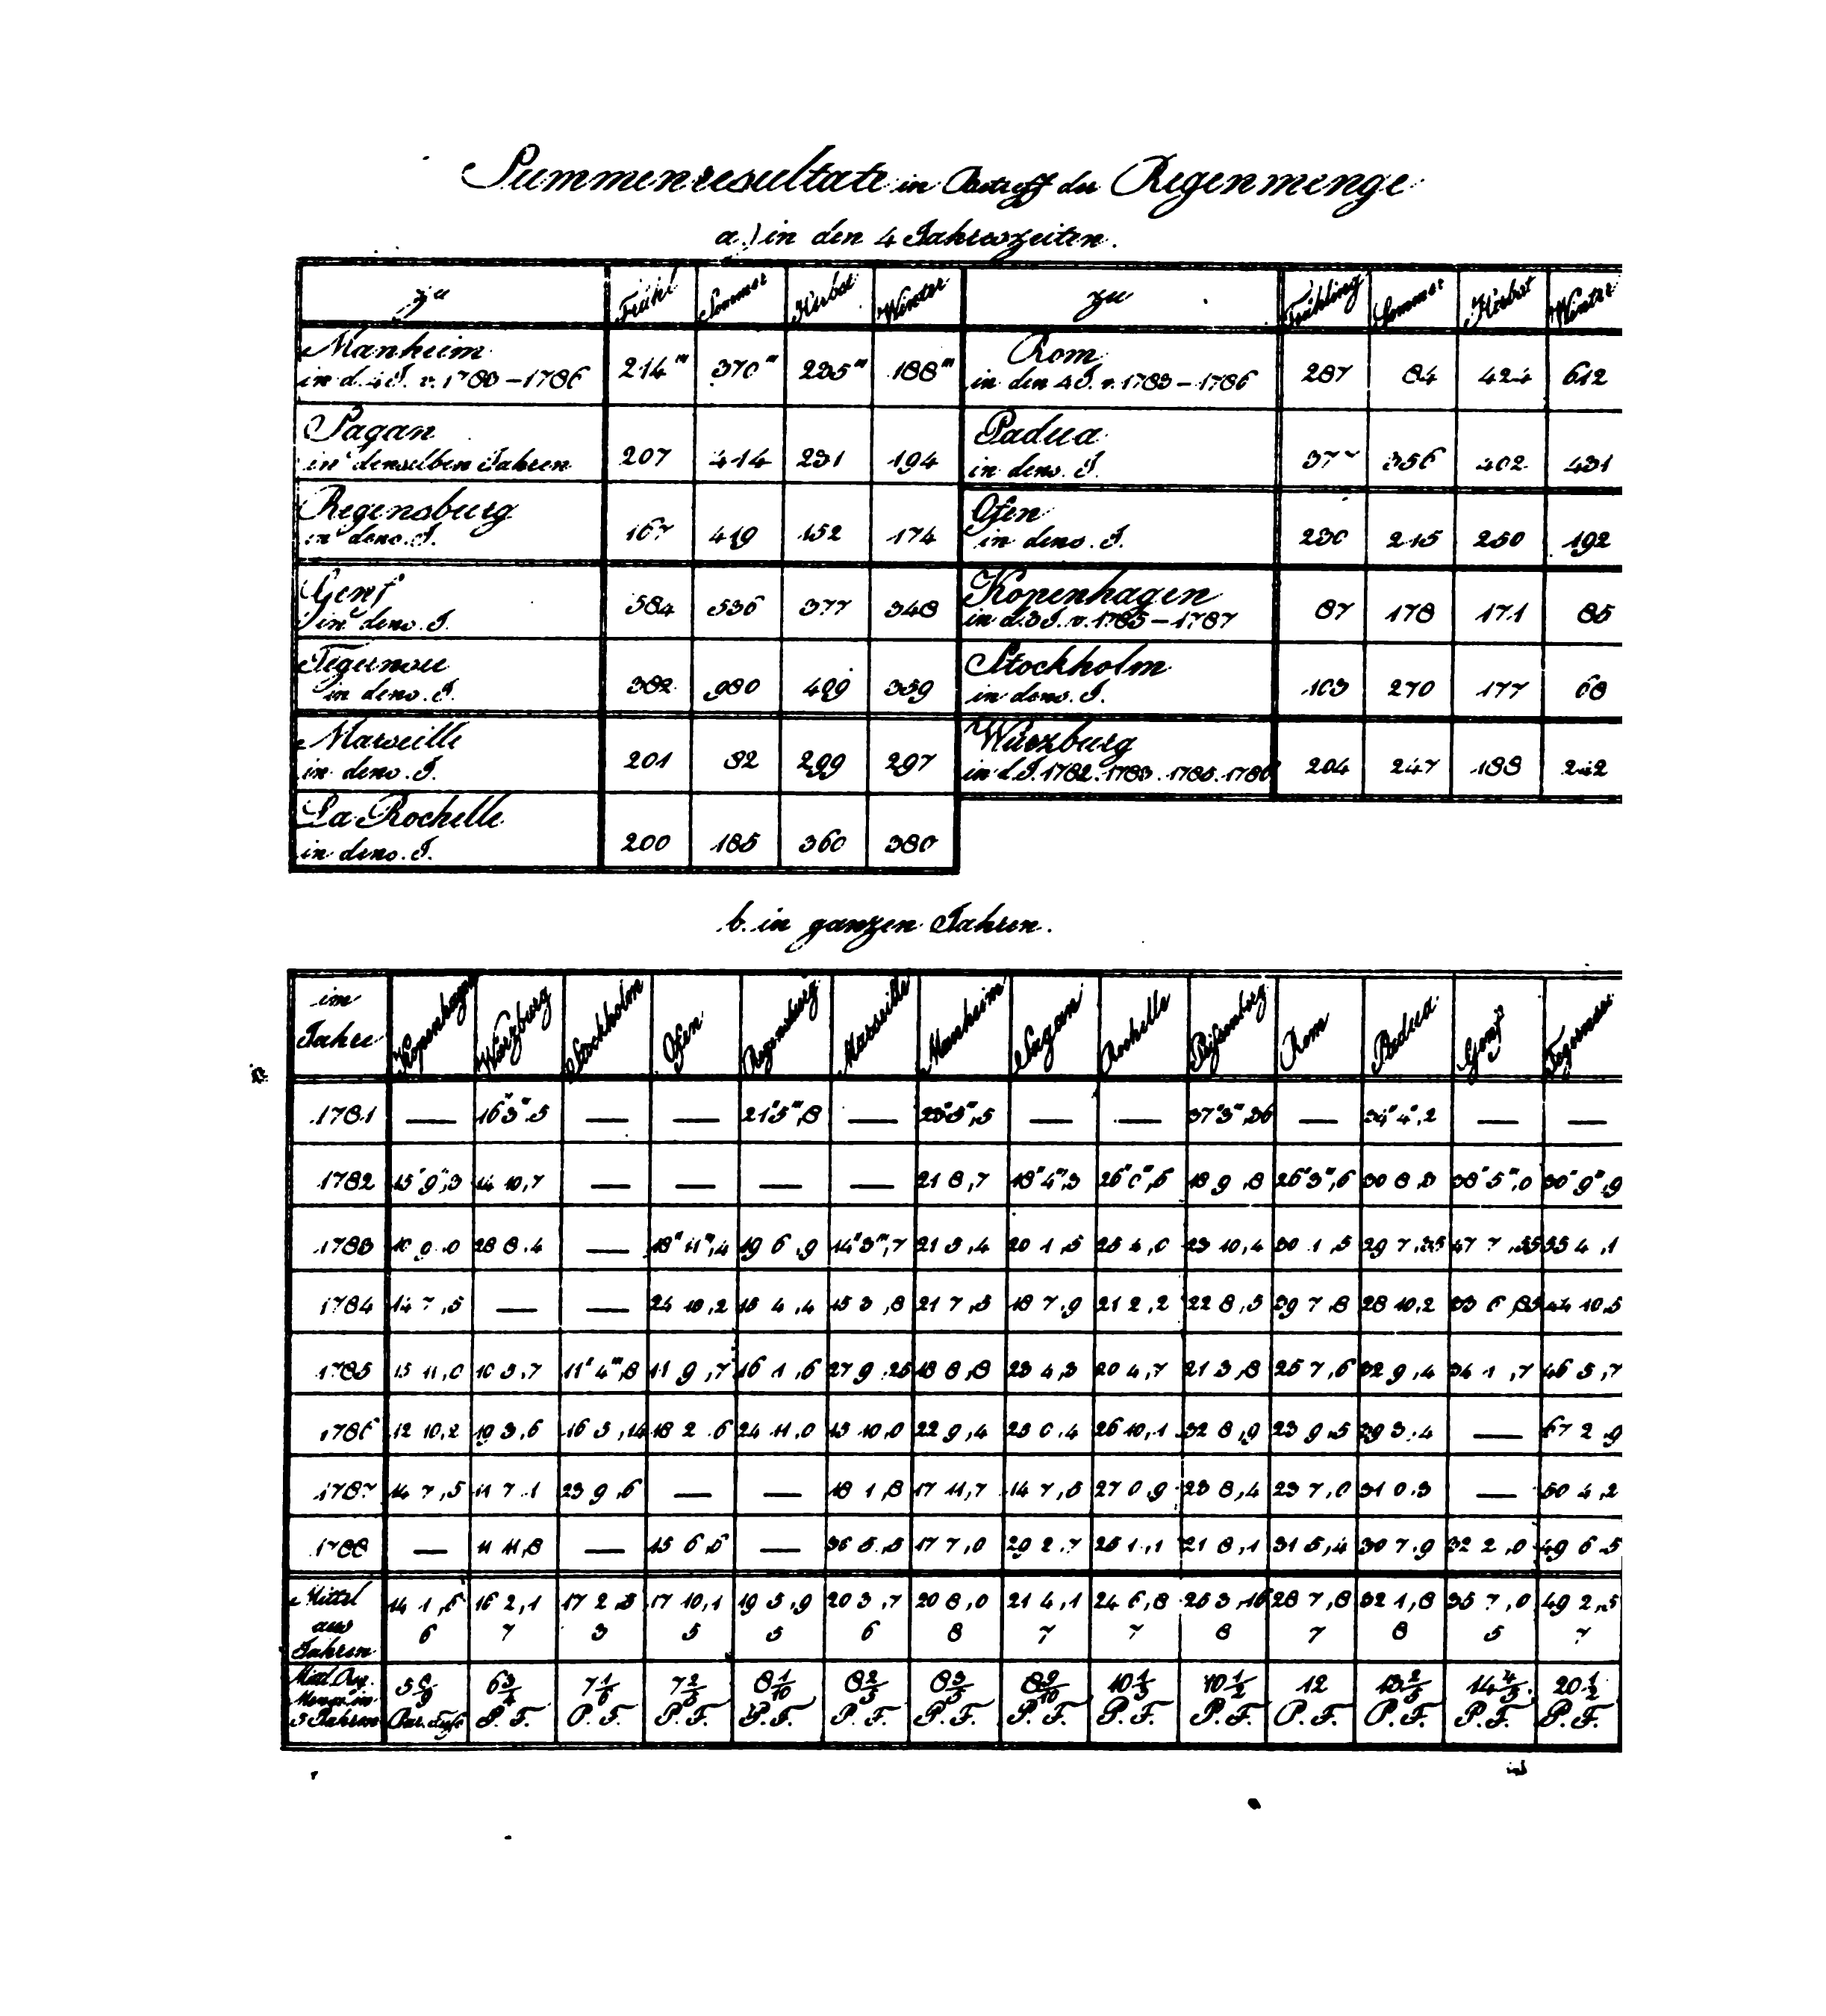 Summenresultate in Betreff der Regenmenge
a.) in den 4 Jahreszeiten.
zu Frühl Sommer Herbst Winter zu Frühling Sommer Herbst Winter
Manheim Rom
in d. 4 J. v. 1783–1786 214''' 370''' 235''' 188''' in den 4 J. v. 1783–1786 287 84 424 612
Sagan Padua
in denselben Jahren 207 414 231 194 in dens. J. 377 356 402 431
Regensburg Ofen
in dens. J. 167 419 152 174 in dens. J. 230 215 250 192
Genf Kopenhagen
in dens. J. 384 336 377 348 in d. 3 J. v. 1785–1787 87 178 171 85
Tegernsee Stockholm
in dens. J. 382 980 499 359 in dens. J. 103 270 177 68
Marseille Würzburg
in dens. J. 201 82 299 297 in d. J. 1782. 1783. 1785. 1786 204 247 188 242
La Rochelle
in dens. J. 200 185 360 380
b. in ganzen Jahren.
im Jahre Kopenhagen Würzburg Stockholm Ofen Regensburg Marseille Manheim Sagan Rochelle Peißenberg Rom Padua Genf Tegernsee
1781 — 16''3'''.5 — — 21''5''',8 — 23''5''',5 — — 37''3''',36 — 34''4''',2 — —
1782 15''9''',3 14 10,7 — — — — 21 8,7 18''4''',3 26''0''',5 18 9,8 26''3''',6 30 8,3 38''5''',0 30''9''',9
1783 10 9.0 28 8.4 — 18''11''',4 19 6,9 14''3''',7 21 3,4 20 1,5 25 4,0 23 10,4 30 1,5 29 7,35 47 7,35 55 4,1
1784 14 7,5 — — 24 10,2 15 4,4 15 3,8 21 7,5 18 7,9 21 2,2 22 8,5 39 7,8 28 10,2 33 6,85 44 10,5
1785 15 11,0 10 5,7 11''4''',8 11 9,7 16 1,6 27 9,25 18 8,8 23 4,3 20 4,7 21 3,8 25 7,6 32 9,4 34 1,7 46 5,7
1786 12 10,2 19 3,6 16 5,14 18 2,6 24 11,0 15 10,0 22 9,4 25 0,4 26 10,1 32 8,9 23 9,5 39 3,4 — 67 2,9
1787 14 7,5 11 7,1 23 9,6 — — 18 1,8 17 11,7 14 7,5 27 0,9 23 8,4 23 7,0 31 0,3 — 50 4,2
1788 — 11 11,8 — 15 6,6 — 36 5,5 17 7,0 29 2,7 25 1,1 21 8,1 31 5,4 30 7,9 32 2,0 49 6,5
Mittel 14 1,6 16 2,1 17 2,5 17 10,1 19 5,9 20 3,7 20 8,0 21 4,1 24 6,8 25 3,16 28 7,8 32 1,8 35 7,0 49 2,5
aus Jahren 6 7 3 5 5 6 8 7 7 8 7 8 5 7
Mitl. Reg. Menge in 5 Jahren 5 8/9 6 3/4 7 1/6 7 2/5 8 1/10 8 2/5 8 3/5 8 9/10 10 1/5 10 1/2 12 13 2/5 14 4/5 20 1/2
Par. Fuß P. F. P. F. P. F. P. F. P. F. P. F. P. F. P. F. P. F. P. F. P. F. P. F. P. F.